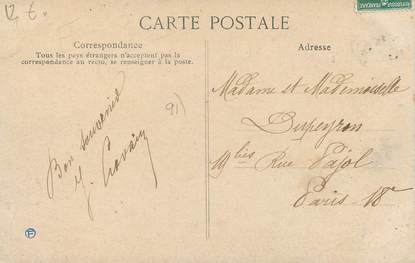 12 €.
CARTE POSTALE
Correspondance
Tous les pays étrangers n'acceptent pas la
correspondance au recto, se renseigner à la poste.
Bon souvenir
91)
Adresse
Madame et Mademoiselle
Dupeyron
bis Rue Pajol
Paris 18e